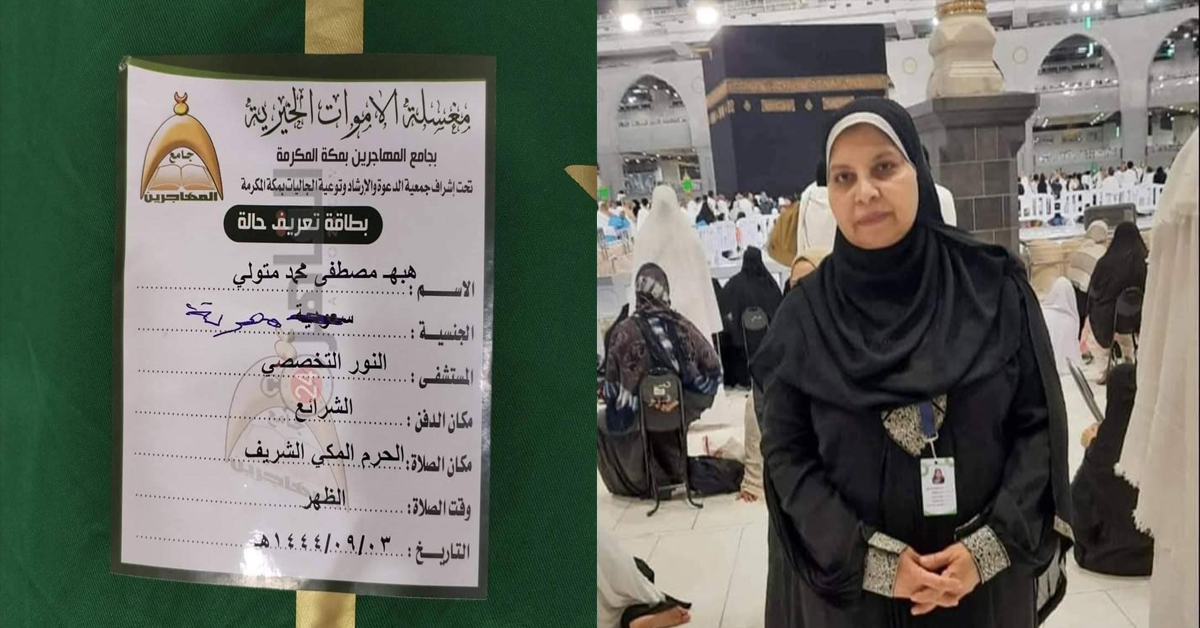 مغسلة الاموات الخيرية
بجامع المهاجرين بمكة المكرمة
تحت إشراف جمعية الدعوة والإرشاد وتوعية الجاليات بمكة المكرمة
جامع
المهاجرين
بطاقة تعريف حالة
الاسم : هبه مصطفى محمد متولي
الجنسية : سعودية مصرية
المستشفى : النور التخصصي
مكان الدفن : الشرائع
مكان الصلاة : الحرم المكي الشريف
وقت الصلاة : الظهر
التاريخ : ١٤٤٤/٠٩/٠٣هـ
24